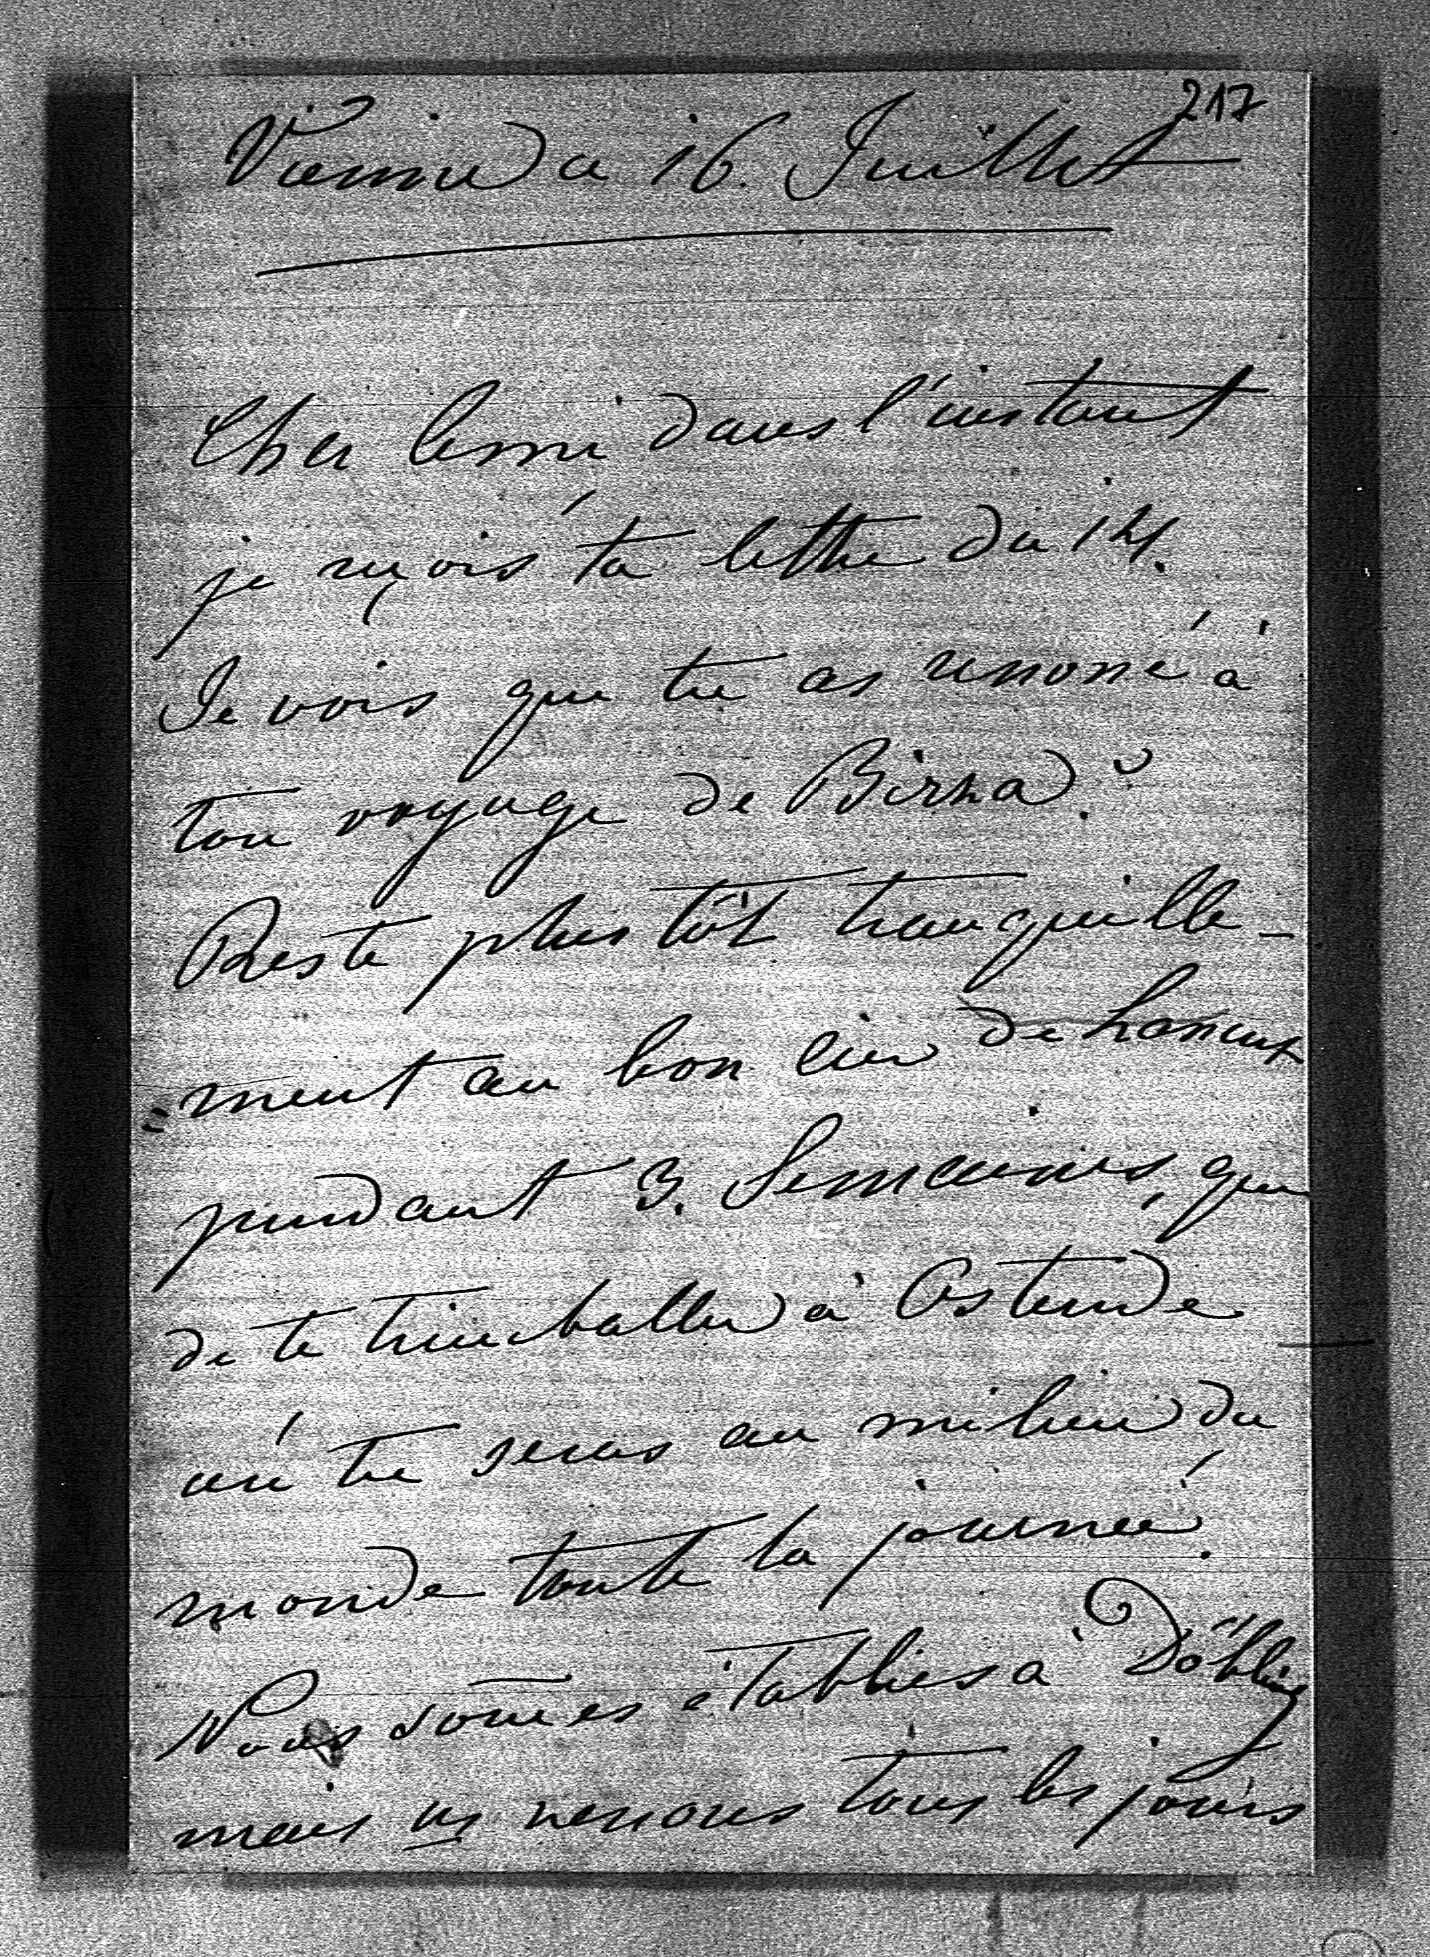 217
Vienne a 16. Juillet
Cher ami dans l'instant
je reçois ta lettre du 14.
Je vois que tu as renoné à
ton voyage de Birza?
Reste plus tôt tranquille-
=ment au bon air de Lancut
pendant 3. Semaines, que
de te trimballer à Ostende
où tu seras au milieu du
monde toute la journée.
Nous som̅es établies à Döbling
mais ns venons tous les jours